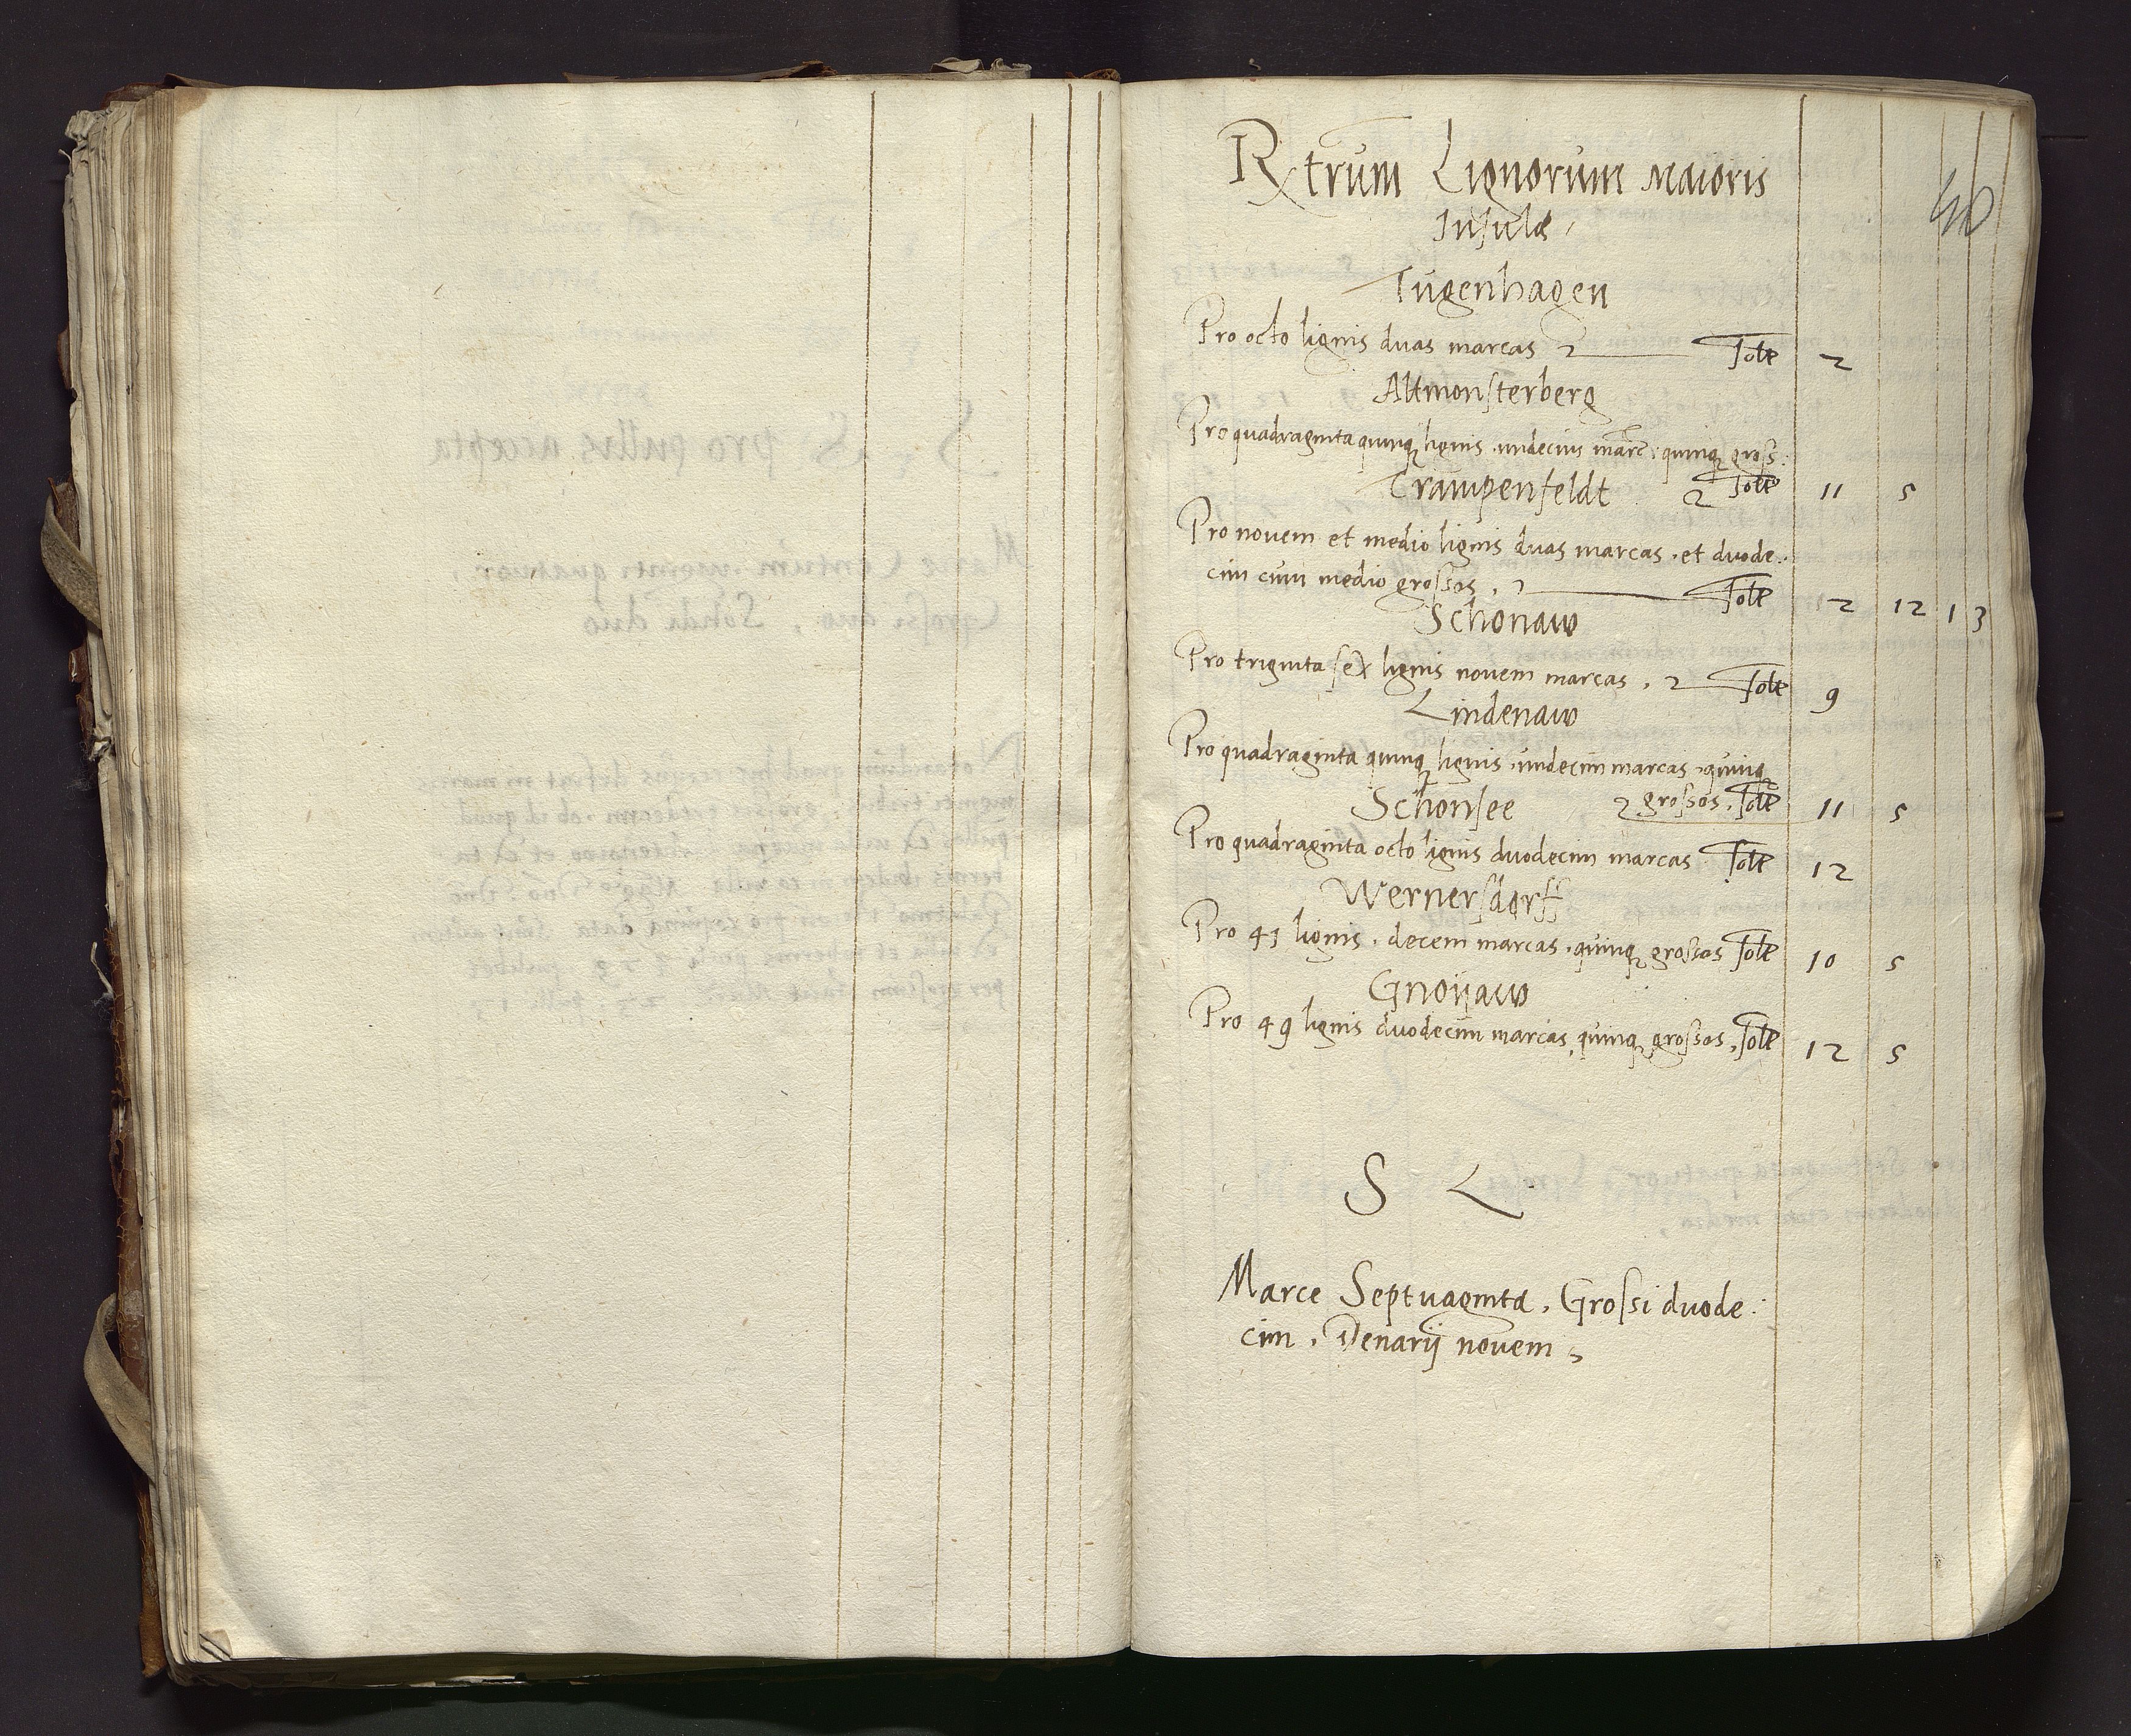 Rtrum Lignorum Maioris
Insulæ
46
Tugenhagen
Pro octo lignis duas marcas solt 2
Altmonsterberg
Pro quadraginta quinq lignis undecim marc: quinq gross:
Trampenfeldt solt 11 5
Pro novem et medio lignis duas marcas et duode:
cim cum medio grossos, solt 2 12 1 3
Schonaw
Pro triginta sex lignis novem marcas, solt 9
Lindenaw
Pro quadraginta quinq lignis undecim marcas quinq
Schonsee grossos, solt 11 5
Pro quadraginta octo lignis duodecim marcas solt 12
Wernersdorff
Pro 41 lignis, decem marcas, quinq grossos solt 10 5
Gnoijaw
Pro 49 lignis duodecim marcas, quinq grossos, solt 12 5
S L
Marce Septuaginta, Grossi duode:
cim, Denarij novem,